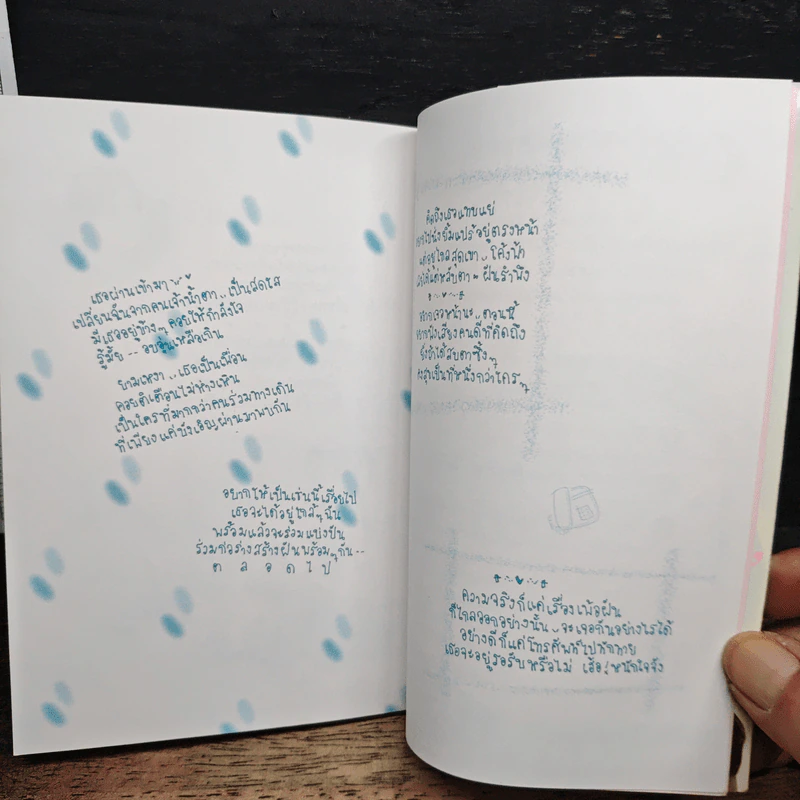 เธอผ่านเข้ามา
เปลี่ยนฉันจากคนเจ้าน้ำตา..เป็นสดใส
มีเธออยู่ข้างๆ คอยให้กำลังใจ
รู้มั้ย -- อบอุ่นเหลือเกิน
ยามเหงา..เธอเป็นเพื่อน
คอยตักเตือนไม่ห่างเหิน
เป็นใครที่มากกว่าคนร่วมทางเดิน
ที่เพียงแค่บังเอิญผ่านมาพบกัน
อยากให้เป็นเช่นนี้เรื่อยไป
เธอจะได้อยู่ใกล้ๆ ฉัน
พร้อมแล้วจะร่วมแบ่งปัน
ร่วมก่อร่างสร้างฝันพร้อมๆ กัน --
ต ล อ ด ไ ป
คิดถึงเธอแทบแย่
ไปนั่งยิ้มแปร้อยู่ตรงหน้า
แต่อยู่ไกลสุดเขา..โค้งฟ้า
ได้แต่หลับตา ~ ฝันรำพึง
อยากเจอหน้านะ..ตอนนี้
อยากฟังเสียงคนดีที่คิดถึง
ยิ่งถ้าได้สบตาซึ้งๆ
สุขเป็นที่หนึ่งกว่าใครๆ
ความจริงก็แค่เรื่องเพ้อฝัน
ก็ไกลออกอย่างนั้น..จะเจอกันอย่างไรได้
อย่างดีก็แค่โทรศัพท์ไปทักทาย
เธอจะอยู่รอรับหรือไม่ เฮ้อ! หนักใจจัง